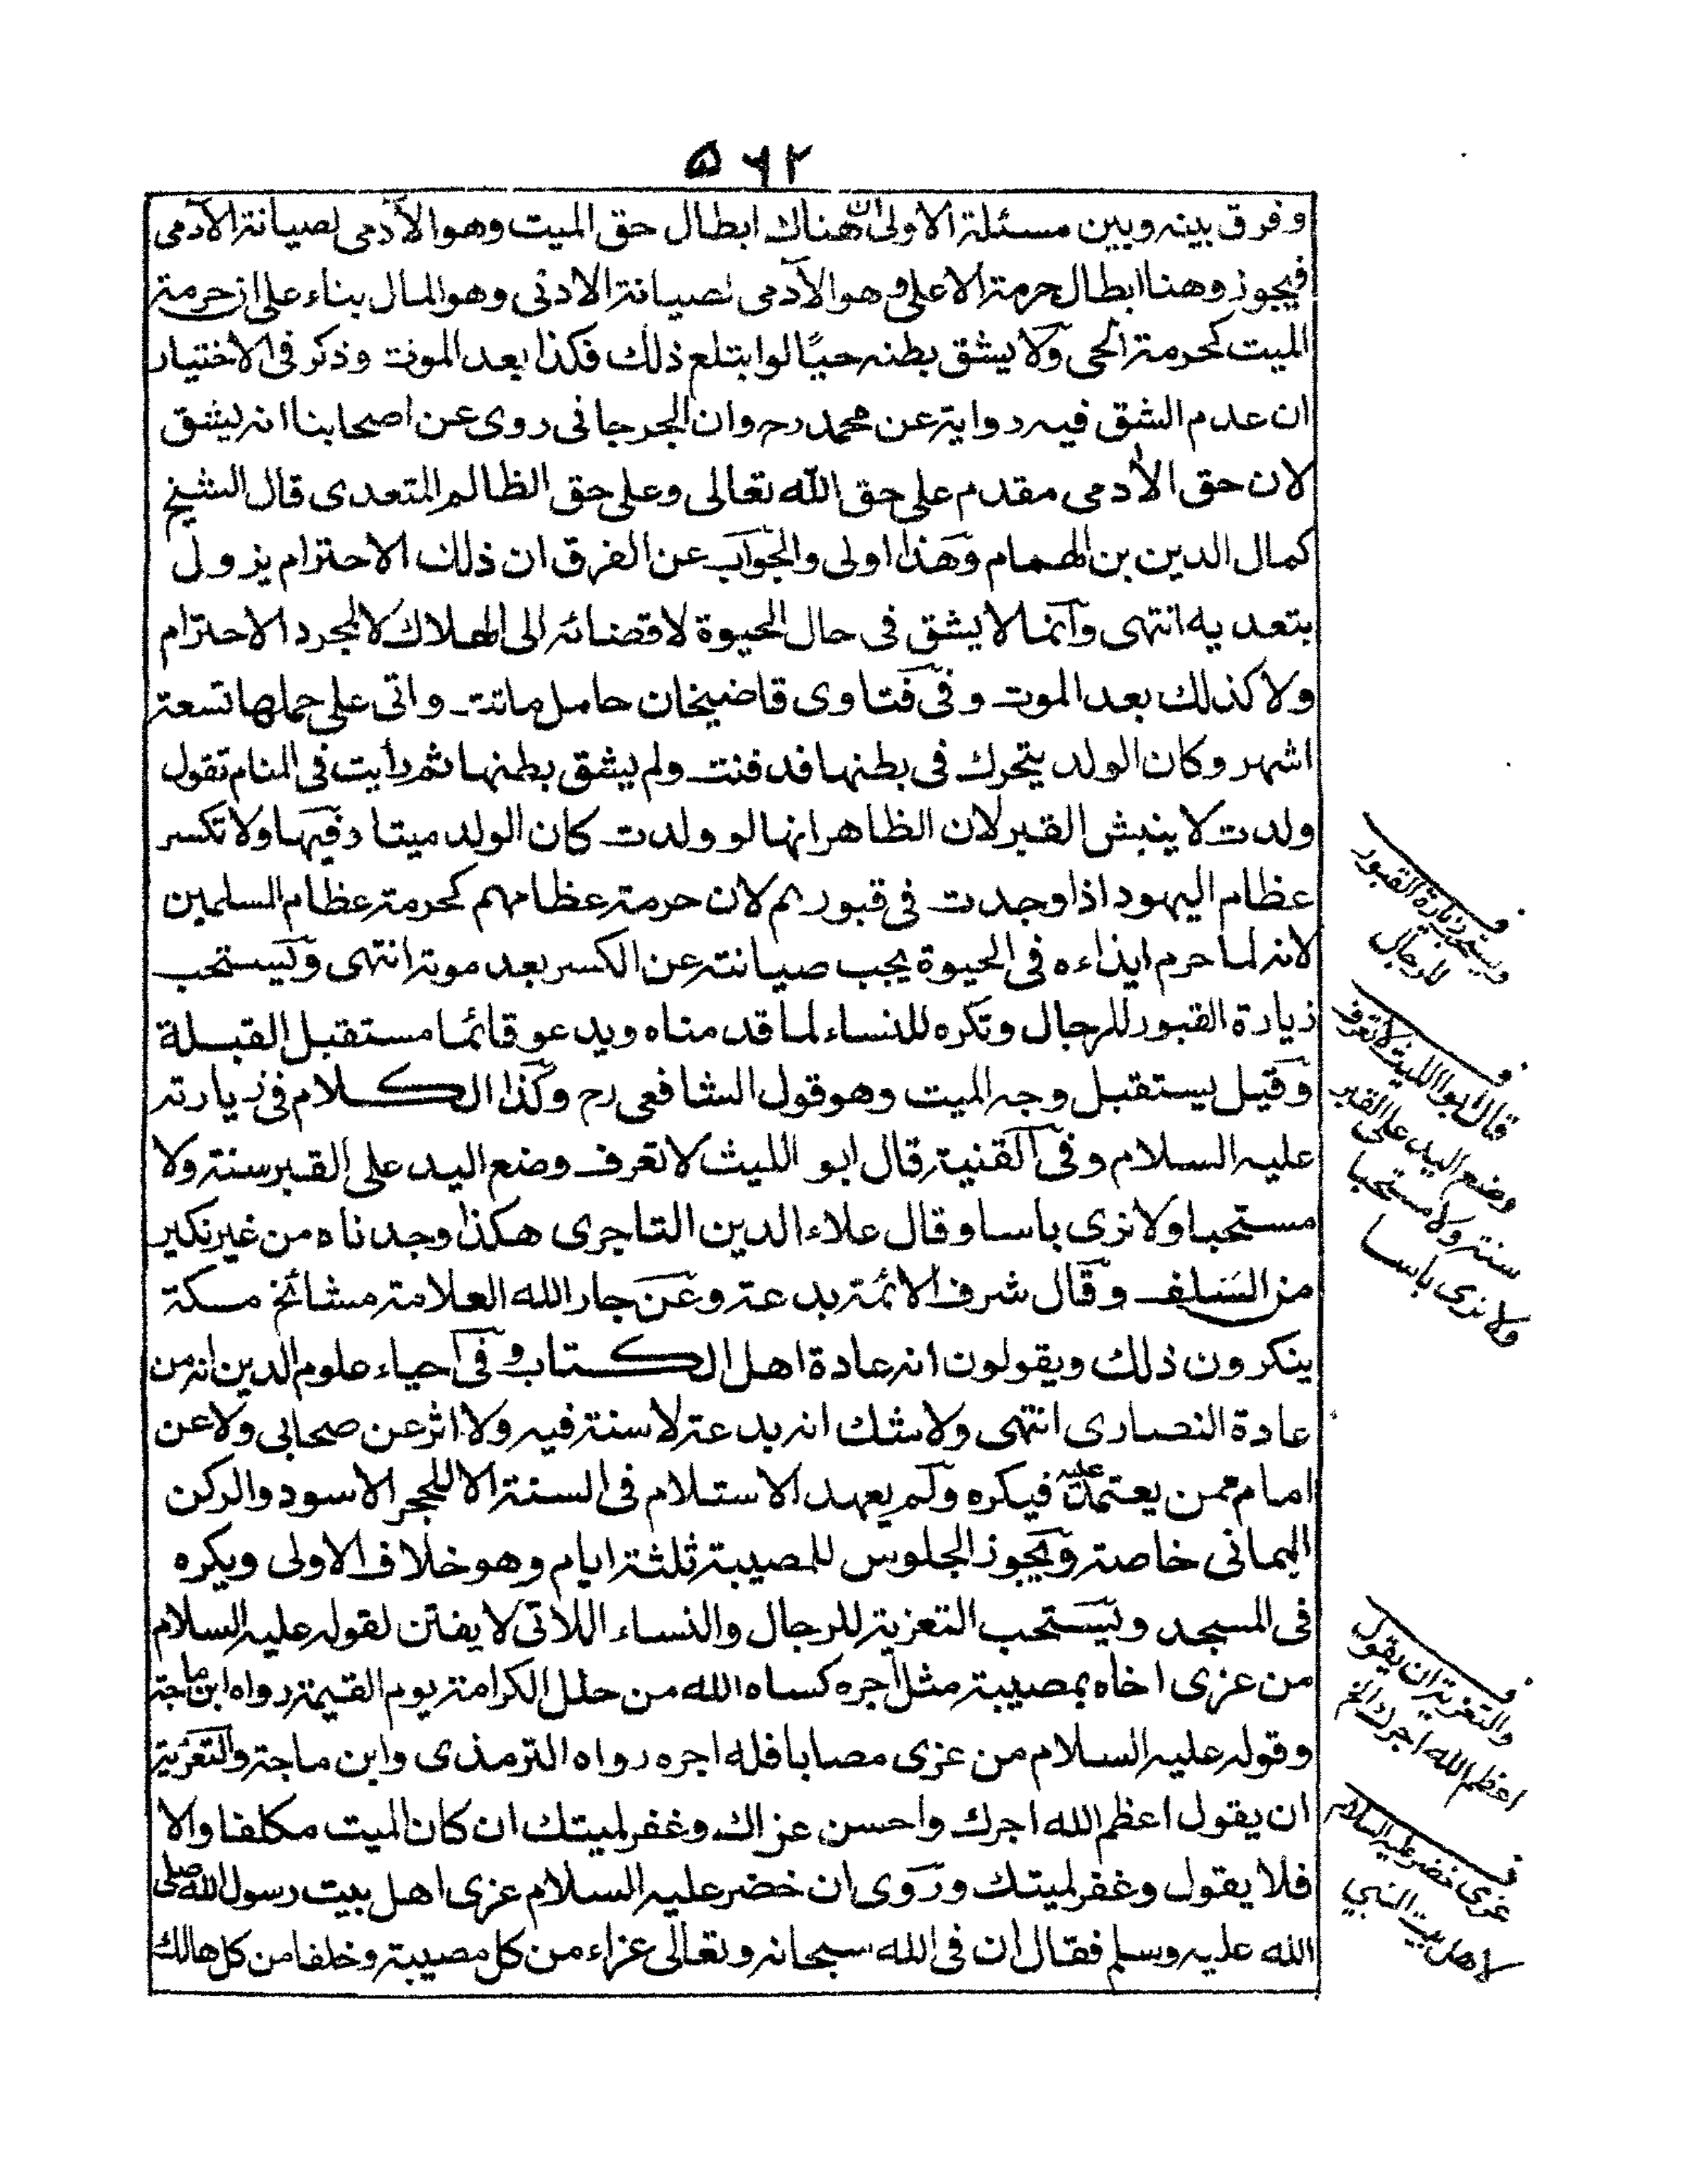 ۵۶۲
وفرق بينه وبين مسئلة الاولى ان هناك ابطال حق الميت وهو الآدمى لصيانة الآدمى
فيجوز وهنا ابطال حرمة الاعلى وهو الآدمى لصيانة الادنى وهو المال بناء على ان حرمة
الميت كحرمة الحى ولا يشق بطنه حيًا لو ابتلع ذلك فكذا بعد الموت وذكر فى الاختيار
ان عدم الشق فيه رواية عن محمد رح وان الجرجانى روى عن اصحابنا انه يشق
لان حق الآدمى مقدم على حق الله تعالى وعلى حق الظالم المتعدى قال الشيخ
كمال الدين بن الهمام وهذا اولى والجواب عن الفرق ان ذلك الاحترام يزول
بتعديه انتهى وانما لا يشق فى حال الحيوة لاقضائه الى الهلاك لا لمجرد الاحترام
ولا كذلك بعد الموت وفى فتاوى قاضيخان حامل ماتت واتى على حملها تسعة
اشهر وكان الولد يتحرك فى بطنها فدفنت ولم يشق بطنها ثم رأيت فى المنام تقول
ولدت لا ينبش القبر لان الظاهر انها لو ولدت كان الولد ميتا وفيها ولا تكسر
عظام اليهود اذا وجدت فى قبورهم لان حرمة عظامهم كحرمة عظام المسلمين
لانه لما حرم ايذاءه فى الحيوة يجب صيانته عن الكسر بعد موته انتهى ويستحب
زيارة القبور للرجال وتكره للنساء لما قدمناه ويدعو قائما مستقبل القبلة
وقيل يستقبل وجه الميت وهو قول الشافعى رح وكذا الكلام فى زيارته
عليه السلام وفى القنية قال ابو الليث لا تعرف وضع اليد على القبر سنة ولا
مستحبا ولا نرى باسا وقال علاء الدين التاجرى هكذا وجدناه من غير نكير
من السلف وقال شرف الائمة بدعة وعن جار الله العلامة مشائخ مكة
ينكرون ذلك ويقولون انه عادة اهل الكتاب وفى احياء علوم الدين انه من
عادة النصارى انتهى ولا شك انه بدعة لا سنة فيه ولا اثر عن صحابى ولا عن
امام ممن يعتمد عليه فيكره ولم يعهد الاستلام فى السنة الا للحجر الاسود والركن
اليمانى خاصة ويجوز الجلوس للمصيبة ثلثة ايام وهو خلاف الاولى ويكره
فى المسجد ويستحب التعزية للرجال والنساء اللاتى لا يفتن لقوله عليه السلام
من عزى اخاه بمصيبة مثل اجره كساه الله من حلل الكرامة يوم القيمة رواه ابن ماجة
وقوله عليه السلام من عزى مصابا فله اجره رواه الترمذى وابن ماجة والتعزية
ان يقول اعظم الله اجرك واحسن عزاك وغفر لميتك ان كان الميت مكلفا والا
فلا يقول وغفر لميتك وروى ان خضر عليه السلام عزى اهل بيت رسول الله صلى
الله عليه وسلم فقال ان فى الله سبحانه وتعالى عزاء من كل مصيبة وخلفا من كل هالك
ويستحب زيارة القبور
للرجال
قال ابو الليث لا تعرف
وضع اليد على القبر
سنة ولا مستحبا
ولا نرى باسا
والتعزية ان يقول
اعظم الله اجرك الخ
عزى خضر عليه السلام
لاهل بيت النبي